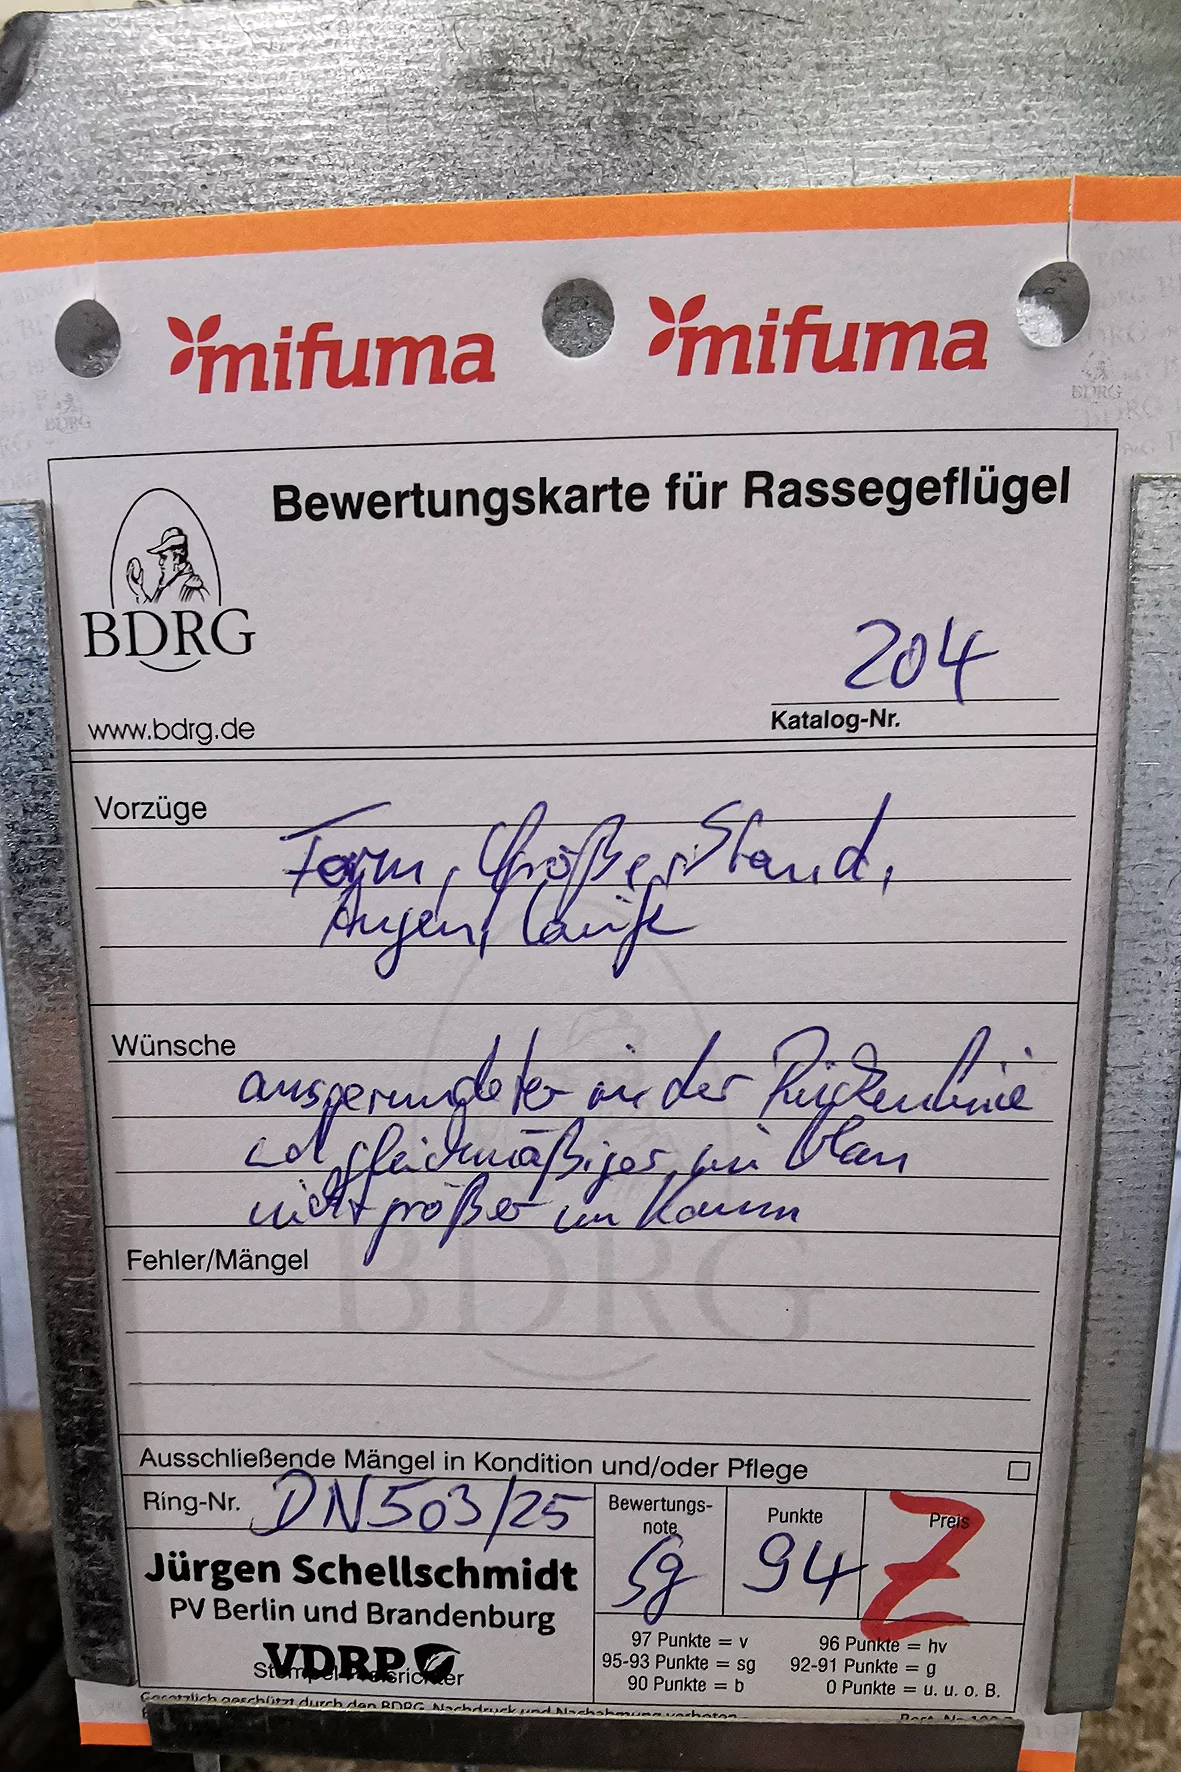 mifuma mifuma
Bewertungskarte für Rassegeflügel
BDRG
www.bdrg.de
204
Katalog-Nr.
Vorzüge
Form, Größe, Stand,
Augen, Läufe
Wünsche
ausgerundeter in der Rückenlinie
gleichmäßiger im blau
nicht größer im Kamm
BDRG
Fehler/Mängel
Ausschließende Mängel in Kondition und/oder Pflege
Ring-Nr. DN503/25
Bewertungs-
note
Sg
Punkte
94
Preis
Z
Jürgen Schellschmidt
PV Berlin und Brandenburg
VDRP
Stempel Preisrichter
97 Punkte = v 96 Punkte = hv
95-93 Punkte = sg 92-91 Punkte = g
90 Punkte = b 0 Punkte = u. u. o. B.
Gesetzlich geschützt durch den BDRG, Nachdruck und Nachahmung verboten